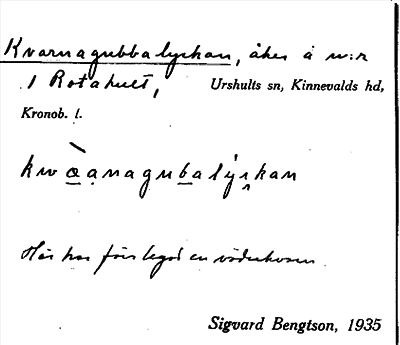 Kvarnagubbalyckan, åker å n:r
1 Rotahult, Urshults sn, Kinnevalds hd,
Kronob. l.
kwæanagubalyckan
Här har förr legat en väderkvarn.
Sigvard Bengtson, 1935